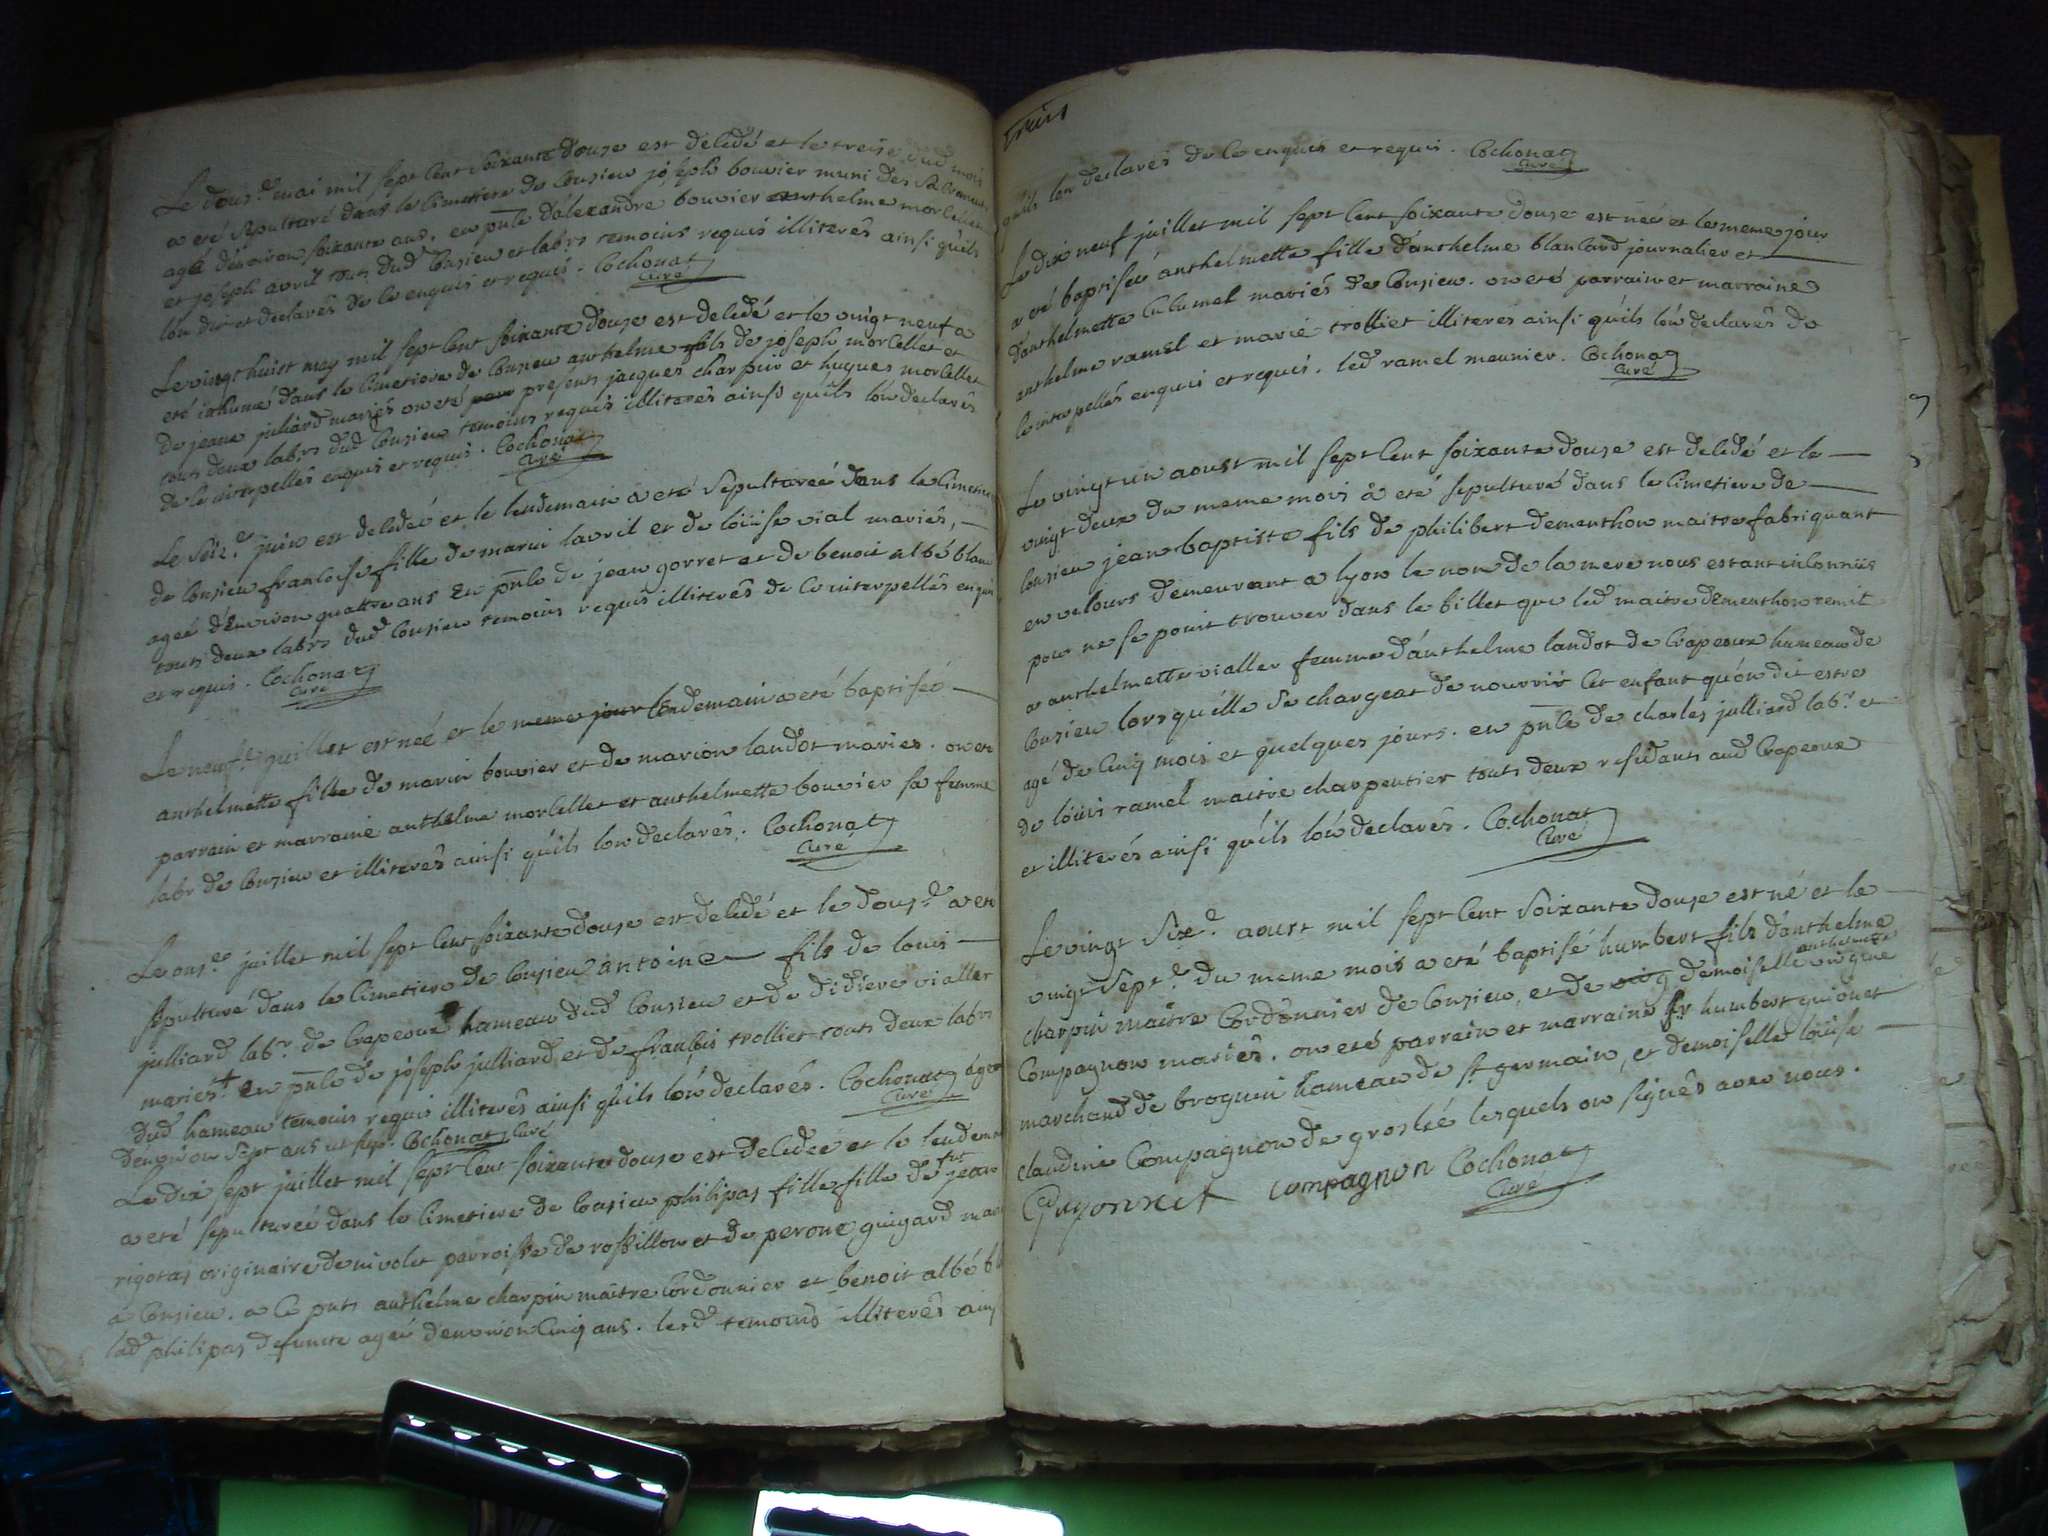 Le dous.e mai mil sept cent soixante douse est decedé et le treise dud mois
a eté sepulturé dans le cimetiere de Consieu joseph bouvier muni des sacrements
agé d'environ soixante ans, en pnce d'alexandre bouvier anthelme morcellet
et joseph avril touts dud Consieu et labrs temoins requis illiterés ainsi qu'ils
lon dit et declarés de ce enquis et requis. Cochonat
Curé
Le vingt huist may mil sept cent soixante douse est decedé et le vingt neuf a
eté inhumé dans le cimetiere de Consieu anthelme fils de joseph morcellet et
de jeane juliard mariés on eté presents jacques charpin et hugues morcellet
touts deux labrs dud Consieu temoins requis illiterés ainsi qu'ils lon declarés
de ce interpellés enquis et requis. Cochonat
Curé
Le seiz.e juin est decedeé et le lendemain a eté sepultureé dans le cimetiere
de Consieu francoise fille de marin lavril et de loüise vial mariés,
ageé d'environ quattre ans en pnce de jean gorret et de benoit albé blanc
touts deux labrs dud Consieu temoins requis illiterés de ce interpellés enquis
et requis. Cochonat
Curé
Le neuf.e juillet est neé et le meme jour lendemain a eté baptiseé
anthelmette fille de marin bouvier et de marion landot mariés. on eté
parrain et marraine anthelme morcellet et anthelmette bouvier sa femme
labr de Consieu et illiterés ainsi qu'ils lon declarés. Cochonat
Curé
Le ons.e juillet mil sept cent soixante douse est decedé et le dous.e a eté
sepulturé dans le cimetiere de Consieu antoine fils de louis
julliard labr. de Crapeoux hameau dud Consieu et de didiere viallet
mariés + en pnce de joseph julliard et de francois trolliet touts deux labrs
dud hameau temoins requis illiterés ainsi qu'ils lon declarés. Cochonat agé
Curé
d'environ sept ans ut sup. Cochonat Curé
Le dix sept juillet mil sept cent soixante douse est decedeé et le lendemain
a eté sepultureé dans le cimetiere de Consieu philipas fille fille de fut jean
rigotas originaire de nivolet parroisse de rossillon et de perone guigard
a Consieu. a ce pnts anthelme charpin maitre Cordonnier et benoit albé
lad philipas defuncte ageé d'environ Cinq ans. lesd temoins illiterés
trois
qu'ils lon declarés de ce enquis et requis. Cochonat
Curé
Le dix neuf juillet mil sept cent soixante douse est neé et le meme jour
a eté baptiseé anthelmette fille d'anthelme blancard journalier et
d'anthelmette Cucumel mariés de Consieu. on eté parrain et marraine
anthelme ramel et marie trolliet illiterés ainsi qu'ils lon declarés de
ce interpellés enquis et requis. led ramel meunier. Cochonat
Curé
Le vingt un aoust mil sept cent soixante douse est decedé et le
vingt deux du meme mois a eté sepulturé dans le cimetiere de
Consieu jean baptiste fils de philibert dementhon maitre fabriquant
en velours demeurant a lyon le nom de la mere nous estant inconnüs
pour ne se point trouver dans le billet que led maitre dementhon remit
a anthelmette viallet femme d'anthelme landot de Crapeoux hameau de
Consieu lorsqu'elle se chargeat de nourrir cet enfant qu'on dit estre
agé de Cinq mois et quelques jours. en pnce de charles julliard labr. et
de loüis ramel maitre charpentier touts deux residants aud Crapeoux
et illiterés ainsi qu'ils lon declarés. Cochonat
Curé
Le vingt six.e aoust mil sept cent soixante douse est né et le
vingt sept.e du meme mois a eté baptisé humbert fils d'anthelme
charpin maitre Cordonnier de Consieu, et de demoiselle anthelmette
Compagnon mariés. on eté parrain et marraine sr humbert guionet
marchand de brognin hameau de st germain, et demoiselle loüise
claudine Compagnon de groslée lesquels on signés avec nous.
Guyonnet compagnon Cochonat
Curé